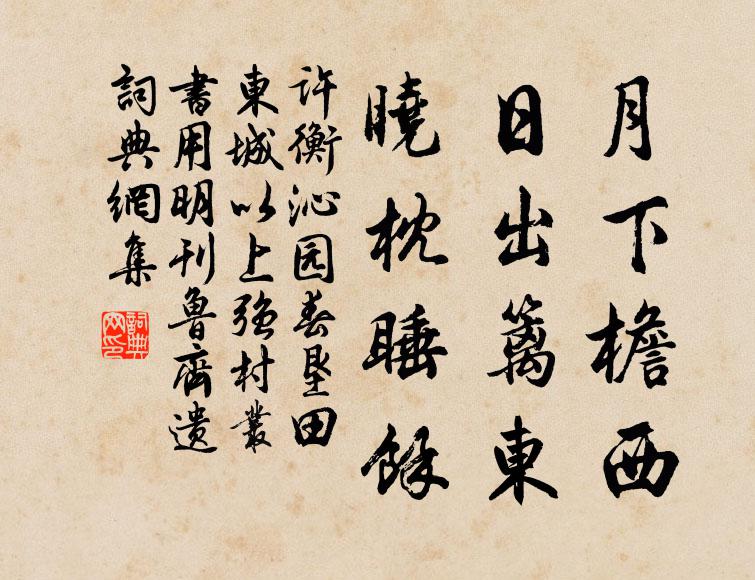 月下檐西
日出篱東
曉枕睡餘
許衡沁园春墾田
東城以上強村叢
書用明刊魯齋遗
詞典網集
詞典網印